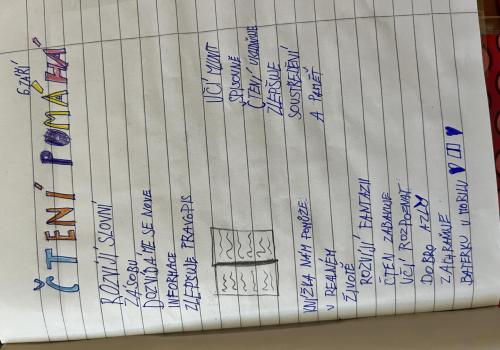 6 ZÁŘÍ
ČTENÍ POMÁHÁ
ROZVÍJÍ SLOVNÍ
ZÁSOBU
DOZVÍDÁME SE NOVÉ
INFORMACE
ZLEPŠUJE PRAVOPIS
UČÍ MLUVIT
SPISOVNĚ
ČTENÍ UKLIDŇUJE
ZLEPŠUJE
SOUSTŘEDĚNÍ
A PAMĚŤ
KNÍŽKA NÁM POMŮŽE
V REÁLNÉM
ŽIVOTĚ
ROZVÍJÍ FANTAZII
ČTENÍ ZABAVUJE
UČÍ ROZPOZNAT
DOBRO A ZLO
ZACHRAŇUJE
BATERKU V MOBILU